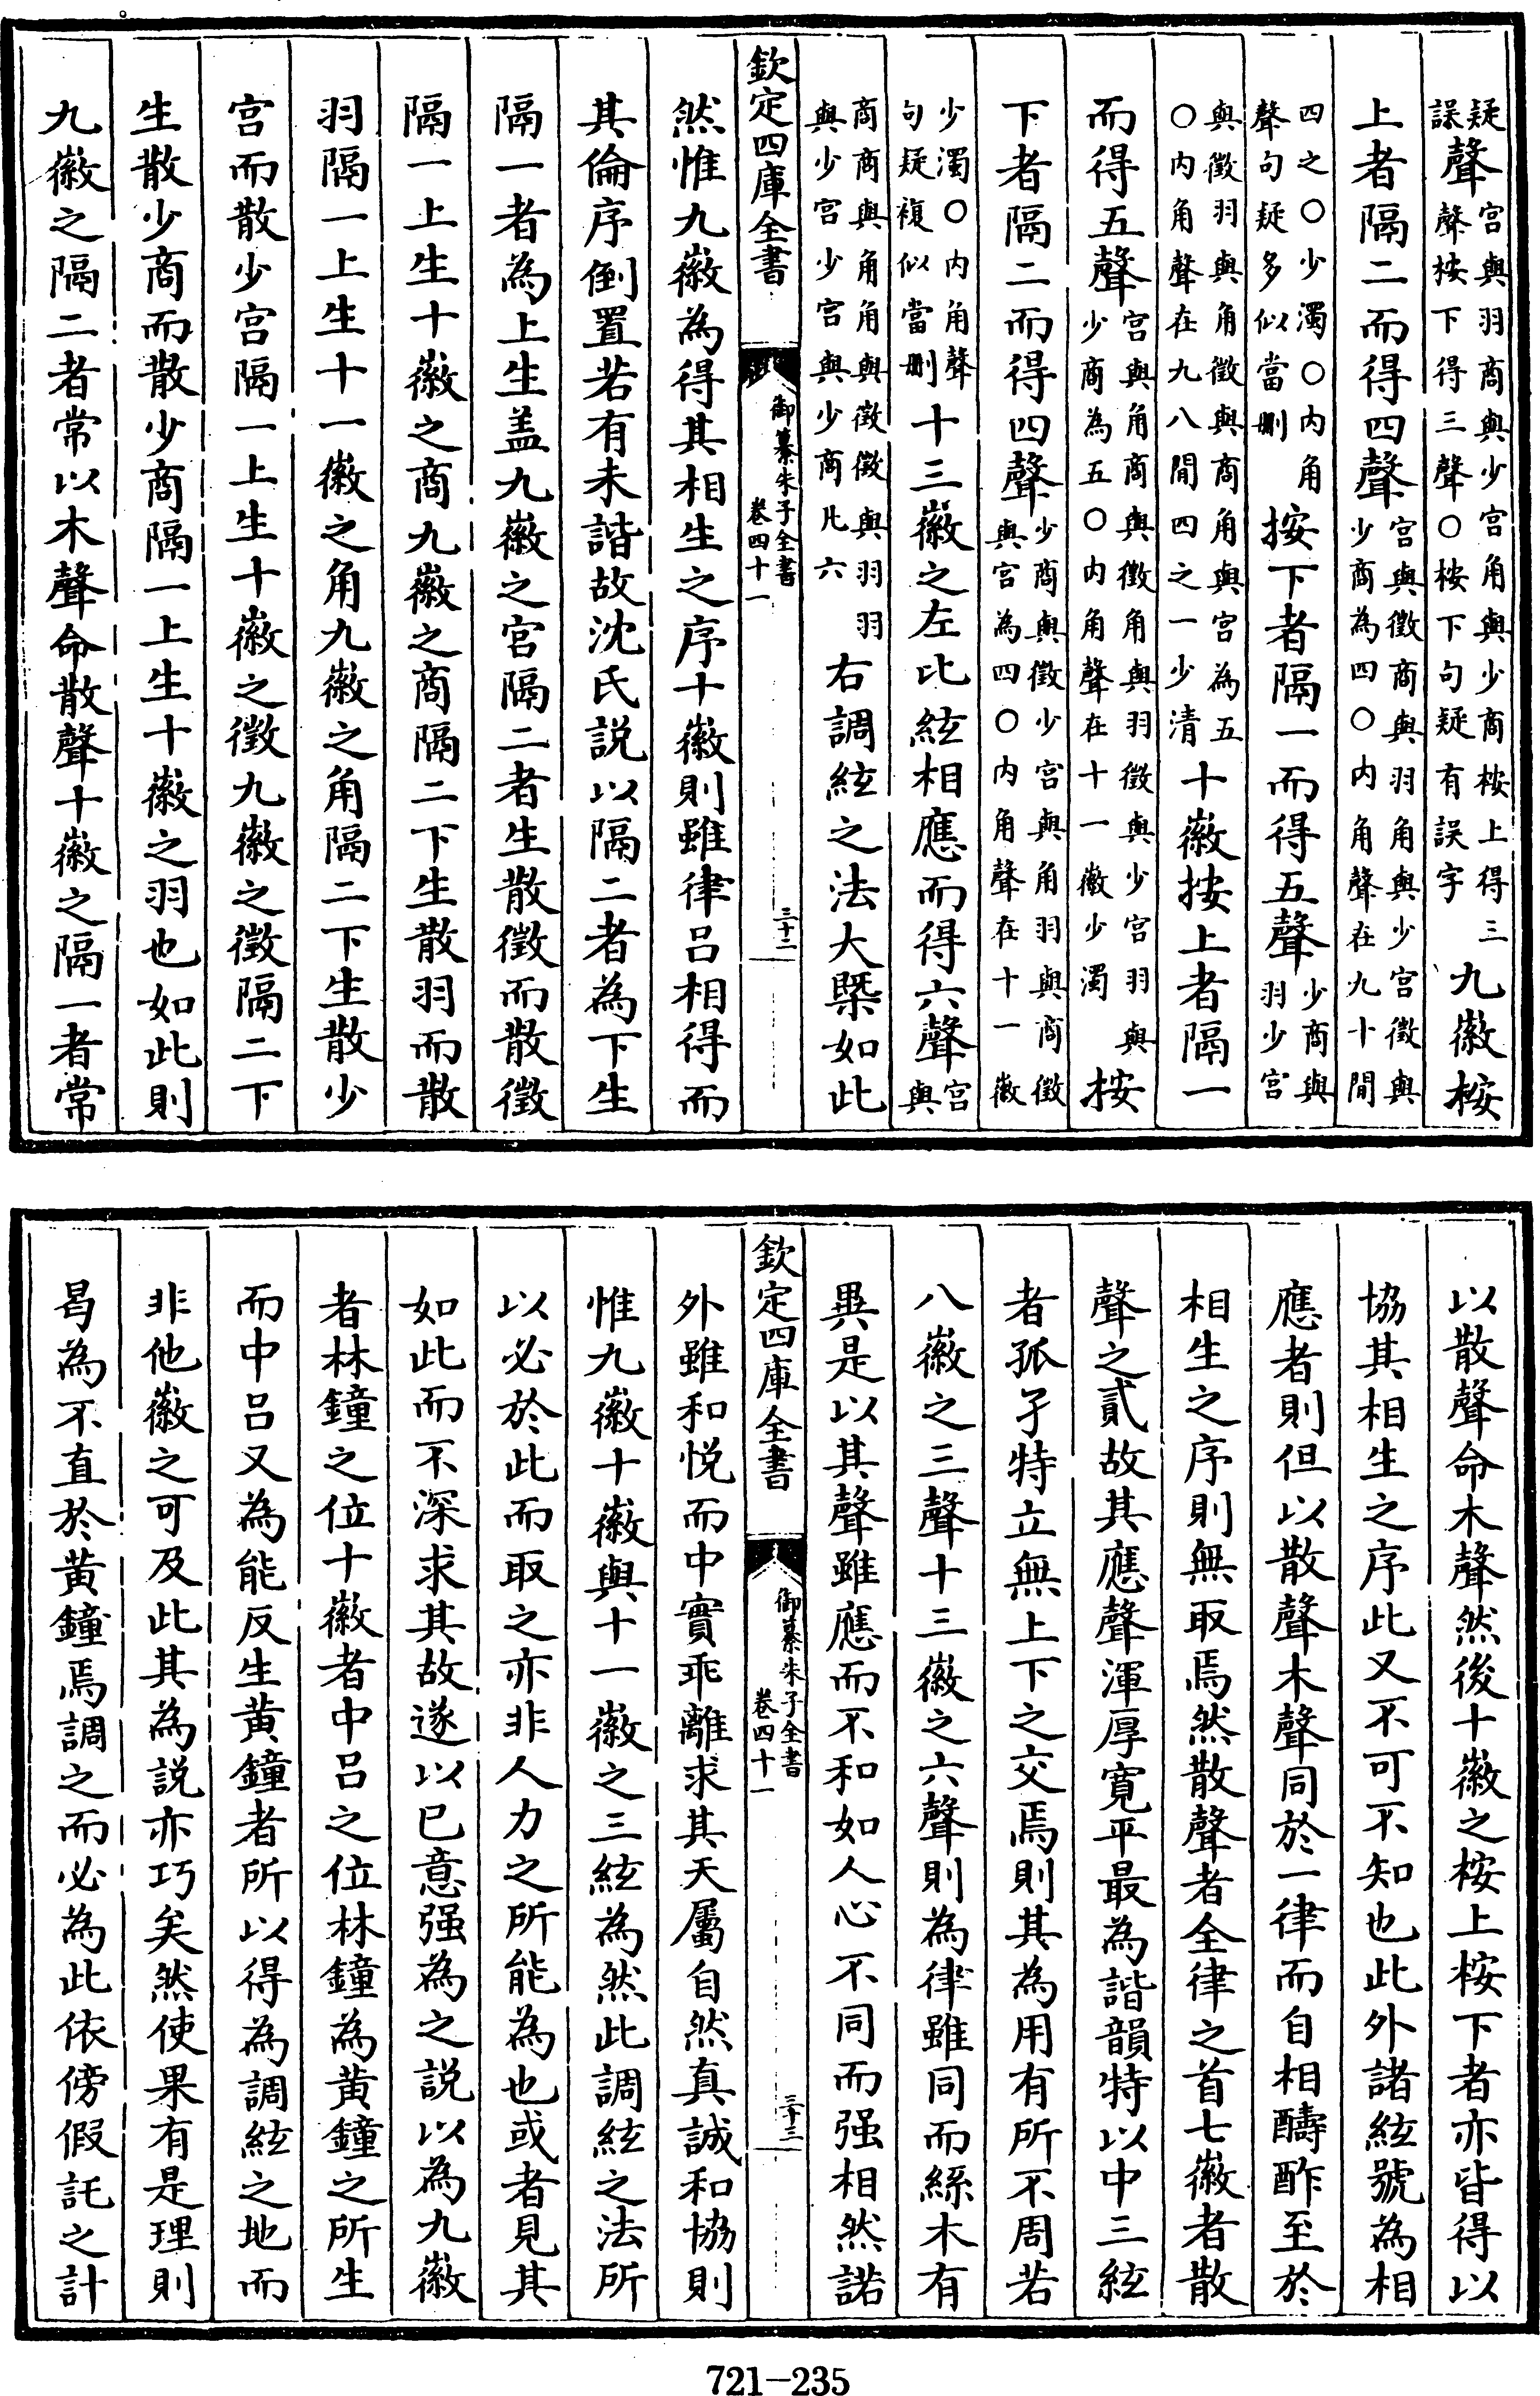 疑誤聲宫與羽商與少宫角與少商桉上得三聲桉下得三聲〇桉下句疑有誤字九徽桉
上者隔二而得四聲宫與徵商與羽角與少宫徵與少商為四〇内角聲在九十間
四之〇少濁〇内角聲句疑多似當刪按下者隔一而得五聲少商與羽少宫
與徵羽與角徵與商角與宫為五〇内角聲在九八間四之一少清十徽按上者隔一
而得五聲宫與角商與徵角與羽徵與少宫羽與少商為五〇内角聲在十一徽少濁桉
下者隔二而得四聲少商與徵少宫與角羽與商徵與宫為四〇内角聲在十一徽
少濁〇内角聲句疑複似當刪十三徽之左比絃相應而得六聲宫與
商商與角角與徵徵與羽羽與少宫少宫與少商凡六右調絃之法大槩如此
欽定四庫全書 御纂朱子全書 卷四十一 三十二
然惟九徽為得其相生之序十徽則雖律呂相得而
其倫序倒置若有未諧故沈氏説以隔二者為下生
隔一者為上生盖九徽之宫隔二者生散徵而散徵
隔一上生十徽之商九徽之商隔二下生散羽而散
羽隔一上生十一徽之角九徽之角隔二下生散少
宫而散少宫隔一上生十徽之徵九徽之徵隔二下
生散少商而散少商隔一上生十徽之羽也如此則
九徽之隔二者常以木聲命散聲十徽之隔一者常
以散聲命木聲然後十徽之桉上桉下者亦皆得以
協其相生之序此又不可不知也此外諸絃號為相
應者則但以散聲木聲同於一律而自相醻酢至於
相生之序則無取焉然散聲者全律之首七徽者散
聲之貳故其應聲渾厚寛平最為諧韻特以中三絃
者孤孑特立無上下之交焉則其為用有所不周若
八徽之三聲十三徽之六聲則為律雖同而絲木有
異是以其聲雖應而不和如人心不同而强相然諾
欽定四庫全書 御纂朱子全書 卷四十一 三十三
外雖和悦而中實乖離求其天屬自然真誠和協則
惟九徽十徽與十一徽之三絃為然此調絃之法所
以必於此而取之亦非人力之所能為也或者見其
如此而不深求其故遂以已意强為之説以為九徽
者林鐘之位十徽者中呂之位林鐘為黄鐘之所生
而中呂又為能反生黄鐘者所以得為調絃之地而
非他徽之可及此其為説亦巧矣然使果有是理則
曷為不直於黄鐘焉調之而必為此依傍假託之計
721-235